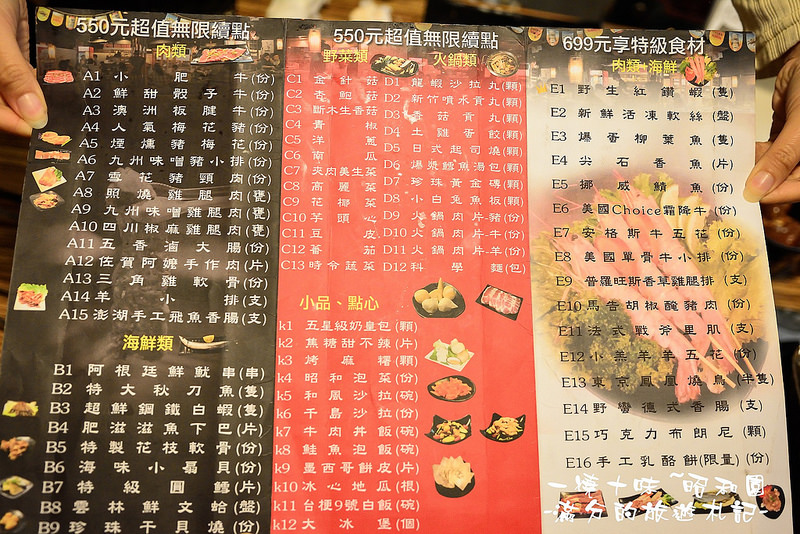 550元超值無限續點
肉類
A1 小肥牛(份)
A2 鮮甜骰子牛(份)
A3 澳洲板腱牛(份)
A4 人氣梅花豬(份)
A5 煙燻豬梅花(份)
A6 九州味噌豬小排(份)
A7 雪花豬頸肉(份)
A8 照燒雞腿肉(甕)
A9 九州味噌雞腿肉(甕)
A10 四川椒麻雞腿肉(甕)
A11 五香滷大腸(份)
A12 佐賀阿嬤手作肉(片)
A13 三角雞軟骨(份)
A14 羊小排(支)
A15 澎湖手工飛魚香腸(支)
海鮮類
B1 阿根廷鮮魷串(串)
B2 特大秋刀魚(隻)
B3 超鮮鋼鐵白蝦(隻)
B4 肥滋滋魚下巴(片)
B5 特製花枝軟骨(份)
B6 海味小扇貝(份)
B7 特級圓鱈(片)
B8 雲林鮮文蛤(盤)
B9 珍珠干貝燒(份)
550元超值無限續點
野菜類
C1 金針菇
C2 杏鮑菇
C3 斷木生香菇
C4 青椒
C5 洋蔥
C6 南瓜
C7 夾肉美生菜
C8 高麗菜
C9 花椰菜
C10 芋頭心
C11 豆皮
C12 蕃茄
C13 時令蔬菜
火鍋類
D1 龍蝦沙拉丸(顆)
D2 新竹噴水貢丸(顆)
D3 香菇貢丸(顆)
D4 土雞蛋餃(顆)
D5 日式起司燒(顆)
D6 爆漿鱈魚湯包(顆)
D7 珍珠黃金磚(顆)
D8 小白兔魚板(顆)
D9 火鍋肉片豬(份)
D10 火鍋肉片牛(份)
D11 火鍋肉片羊(份)
D12 科學麵(包)
小品、點心
k1 五星級奶皇包(顆)
k2 焦糖甜不辣(片)
k3 烤麻糬(顆)
k4 昭和泡菜(份)
k5 和風沙拉(碗)
k6 千島沙拉(份)
k7 牛肉丼飯(碗)
k8 鮭魚泡飯(碗)
k9 墨西哥餅皮(片)
k10 冰心地瓜(根)
k11 台梗9號白飯(碗)
k12 大冰堡(個)
699元享特級食材
肉類+海鮮
E1 野生紅鑽蝦(隻)
E2 新鮮活凍軟絲(盤)
E3 爆蛋柳葉魚(隻)
E4 尖石香魚(片)
E5 挪威鯖魚(份)
E6 美國Choice霜降牛(份)
E7 安格斯牛五花(份)
E8 美國單骨牛小排(份)
E9 普羅旺斯香草雞腿排(支)
E10 馬告胡椒醃豬肉(份)
E11 法式戰斧里肌(支)
E12 小羔羊羊五花(份)
E13 東京鳳凰燒鳥(半隻)
E14 野蠻德式香腸(支)
E15 巧克力布朗尼(顆)
E16 手工乳酪餅(限量)(份)
一燒十味~昭和園
-滿分的旅遊札記-